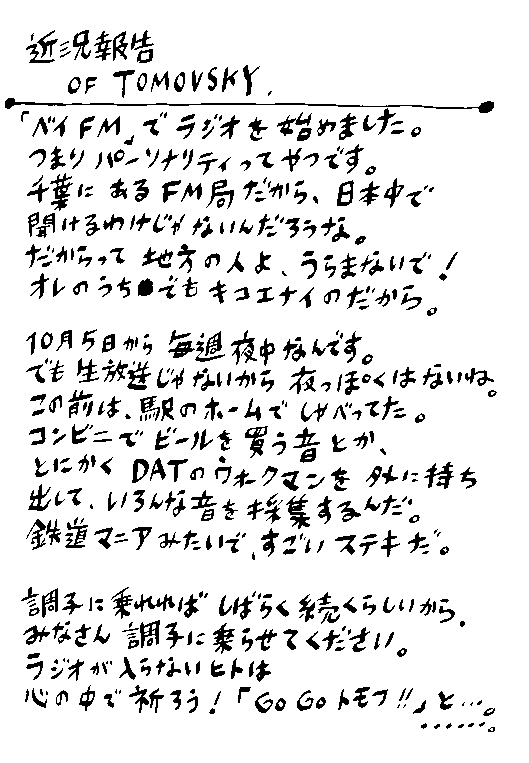 近況報告
OF TOMOVSKY.
「ベイFM」でラジオを始めました。
つまりパーソナリティってやつです。
千葉にあるFM局だから、日本中で
聞けるわけじゃないんだろうな。
だからって地方の人よ、うらまないで!
オレのうちでもキコエナイのだから。
10月5日から毎週夜中なんです。
でも生放送じゃないから夜っぽくはないね。
この前は、駅のホームでしゃべってた。
コンビニでビールを買う音とか、
とにかくDATのウォークマンを外に持ち
出して、いろんな音を採集するんだ。
鉄道マニアみたいで、すごいステキだ。
調子に乗れればしばらく続くらしいから、
みなさん調子に乗らせてください。
ラジオが入らないヒトは
心の中で祈ろう!「GoGoトモフ!!」と…。
……。